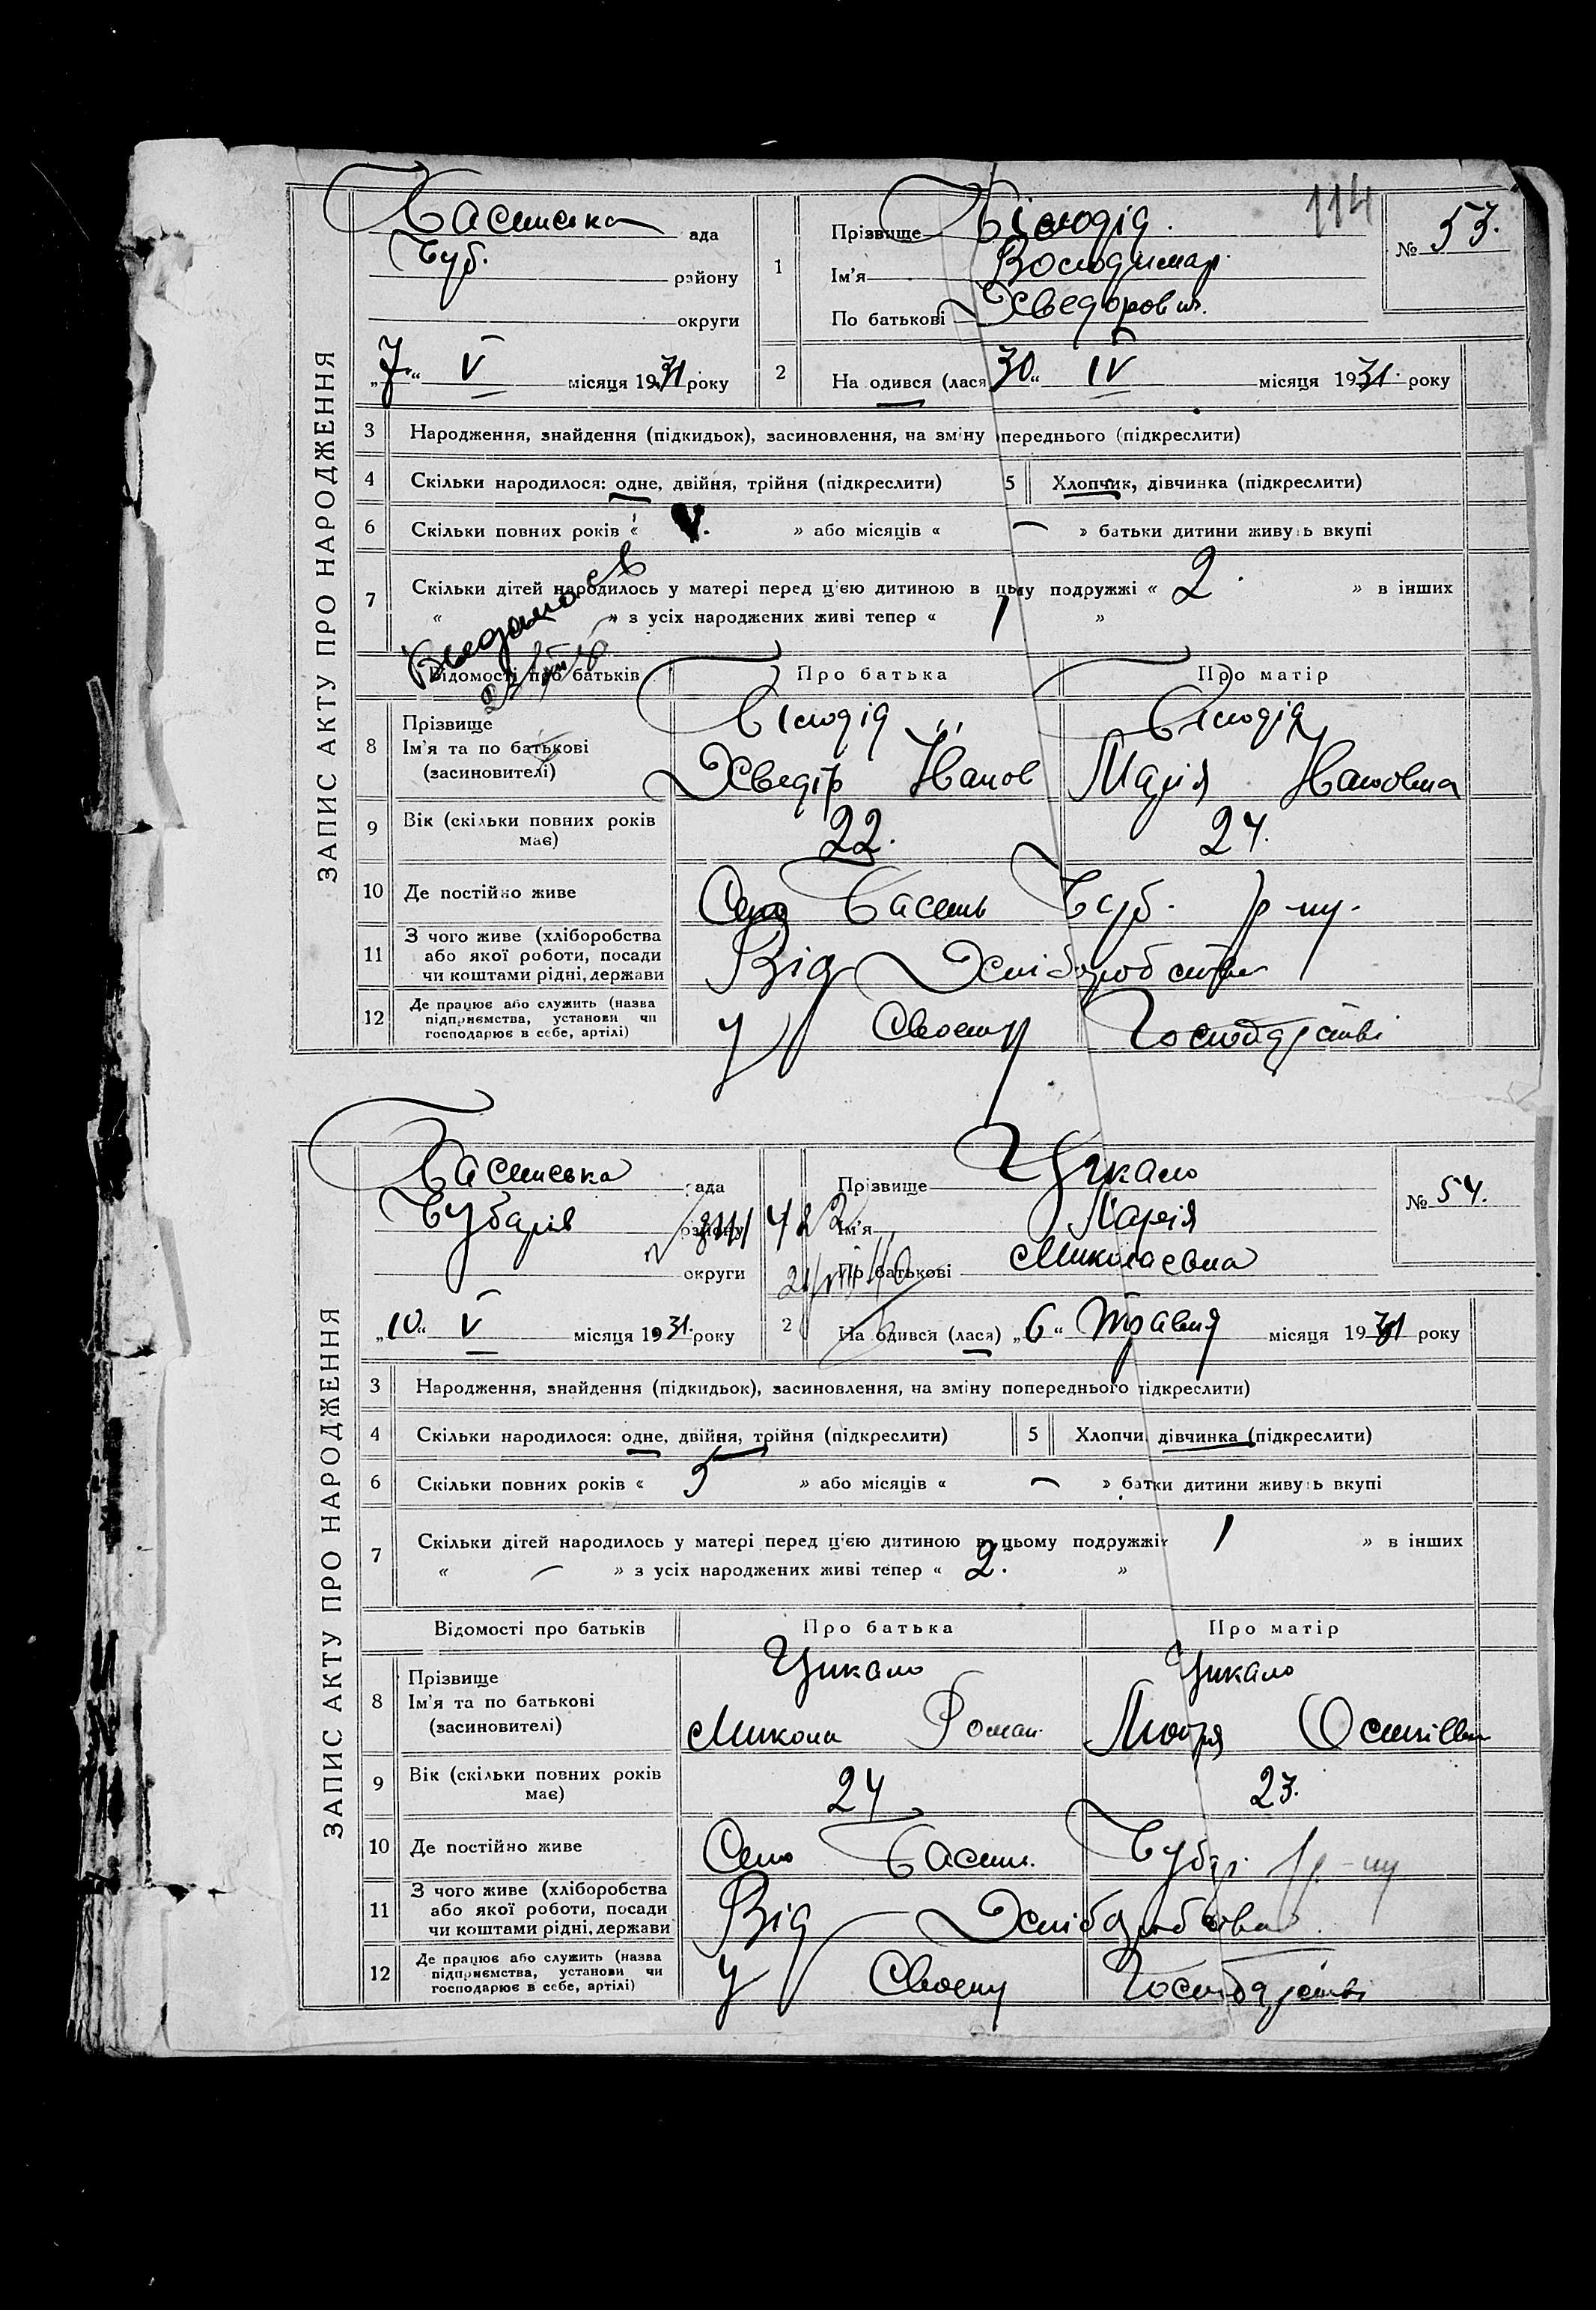 ЗАПИС АКТУ ПРО НАРОДЖЕННЯ
114
Басинська ада
Буб. району
округи
„7“ V місяця 1931 року
1
Прізвище Білодід.
Ім'я Володимар.
По батькові Хведорович.
№ 53.
2 На одився (лася „30“ IV місяця 1931. року
3 Народження, знайдення (підкидьок), засиновлення, на зміну переднього (підкреслити)
4 Скільки народилося: одне, двійня, трійня (підкреслити) 5 Хлопчик, дівчинка (підкреслити)
6 Скільки повних років « V. » або місяців « — » батьки дитини живуть вкупі
7 Скільки дітей народилось у матері перед цією дитиною в цьму подружжі « 2. » в інших
« » з усіх народжених живі тепер « 1 »
Відомості про батьків Про батька Про матір
8 Прізвище
Ім'я та по батькові
(засиновителі)
Білодід Білодід
Хведір Іванов Марія Івановна
9 Вік (скільки повних років має) 22. 24.
10 Де постійно живе Село Басань Буб. р-ну.
11 З чого живе (хліборобства
або якої роботи, посади
чи коштами рідні, держави
Від Хліборобства
12 Де працює або служить (назва
підприємства, установи чи
господарює в себе, артілі)
У своєму Господарстві
ЗАПИС АКТУ ПРО НАРОДЖЕННЯ
Басинська ада
Бубарів району
округи
„10“ V місяця 1931. року
Прізвище Цикало
Ім'я Марія
По батькові Миколаєвна
№ 54.
2 На одився (лася) „6“ Травня місяця 1931 року
3 Народження, знайдення (підкидьок), засиновлення, на зміну попереднього підкреслити)
4 Скільки народилося: одне, двійня, трійня (підкреслити) 5 Хлопчи, дівчинка (підкреслити)
6 Скільки повних років « 5 » або місяців « — » батки дитини живуть вкупі
7 Скільки дітей народилось у матері перед цією дитиною в цьому подружжі 1 » в інших
« — » з усіх народжених живі тепер « 2. »
Відомості про батьків Про батька Про матір
8 Прізвище
Ім'я та по батькові
(засиновителі)
Цикало Цикало
Микола Роман
9 Вік (скільки повних років має) 24 23.
10 Де постійно живе Село Басань. Бубар. р-ну
11 З чого живе (хліборобства
або якої роботи, посади
чи коштами рідні, держави
Від Хліборобства.
12 Де працює або служить (назва
підприємства, установи чи
господарює в себе, артілі)
У своєму Господарстві